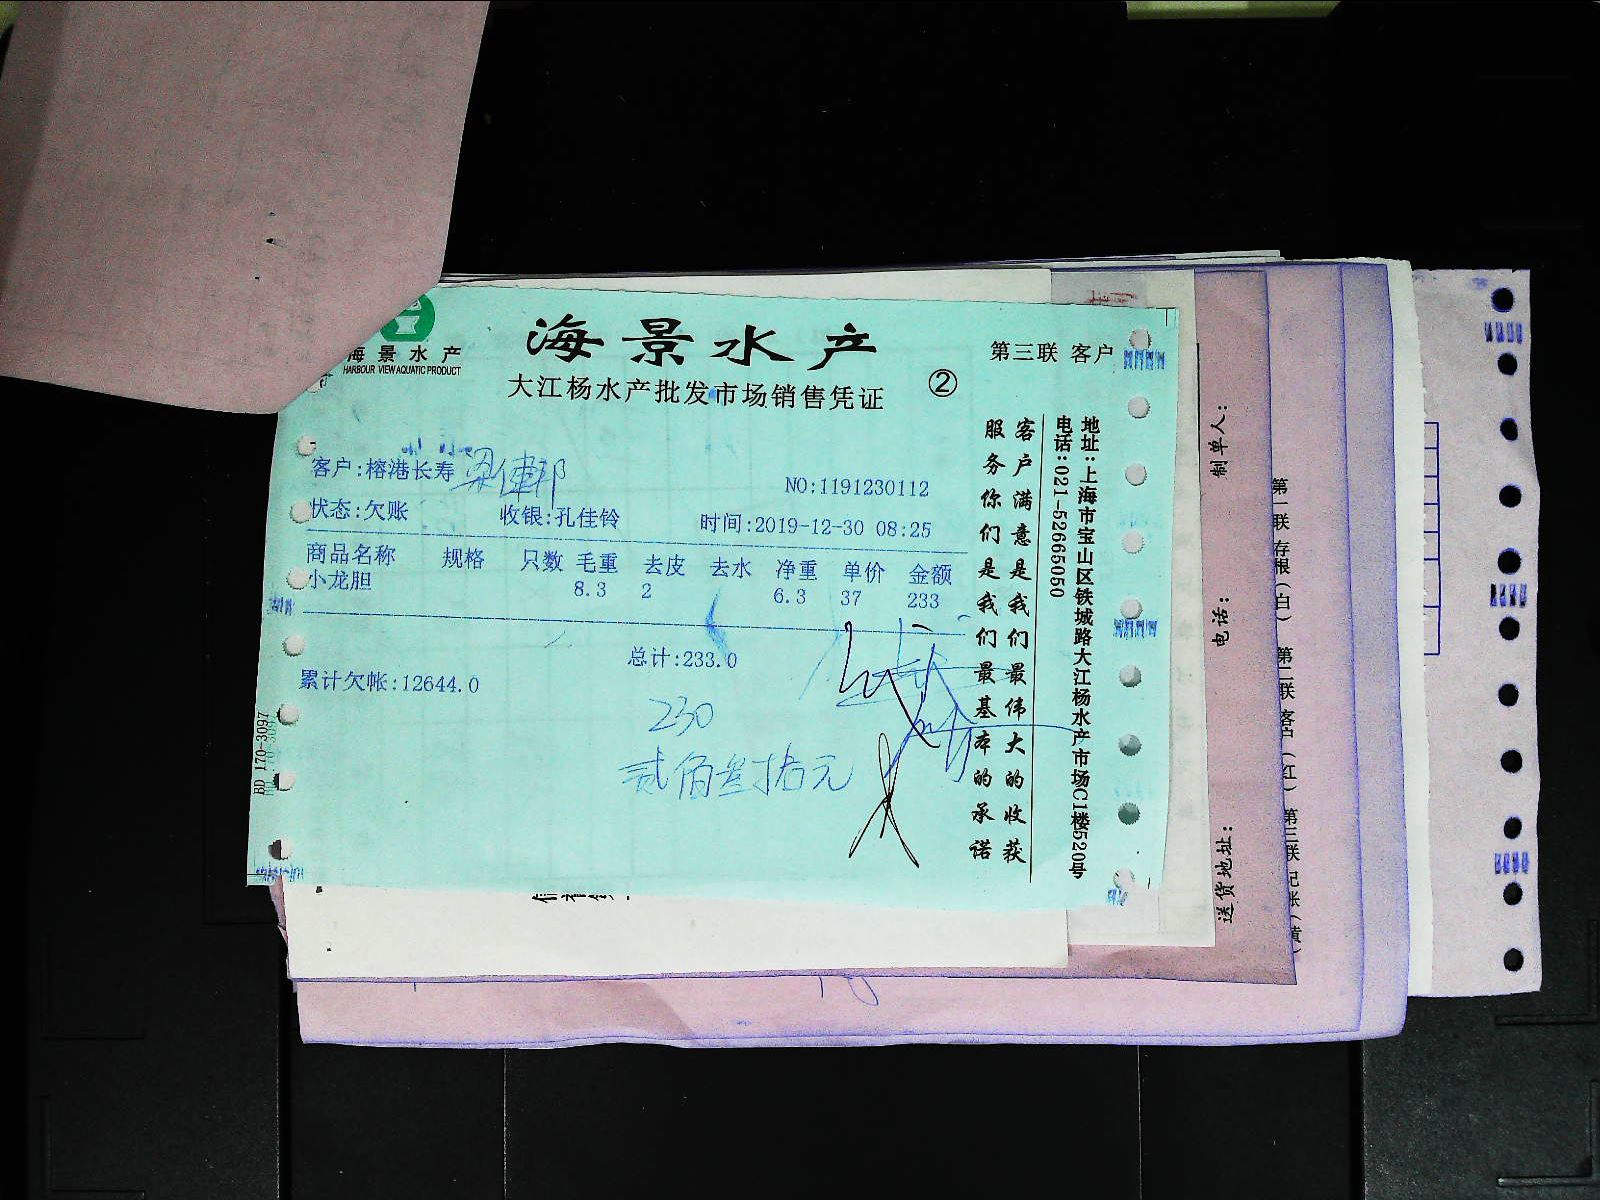 海景水产
HARBOUR VIEW AQUATIC PRODUCT
海景水产
大江杨水产批发市场销售凭证
②
第三联 客户
客户:榕港长寿 梁健邦
NO:1191230112
状态:欠账 收银:孔佳铃 时间:2019-12-30 08:25
商品名称 规格 只数 毛重 去皮 去水 净重 单价 金额
小龙胆 8.3 2 6.3 37 233
总计:233.0
累计欠帐:12644.0
230
贰佰叁拾元
客户满意是我们最伟大的收获
服务你们是我们最基本的承诺
地址:上海市宝山区铁城路大江杨水产市场C1楼520号
电话:021-52665050
BD 170-3097
制单人:
电话:
送货地址:
第一联 存根(白) 第二联 客户(红) 第三联 记账(黄)